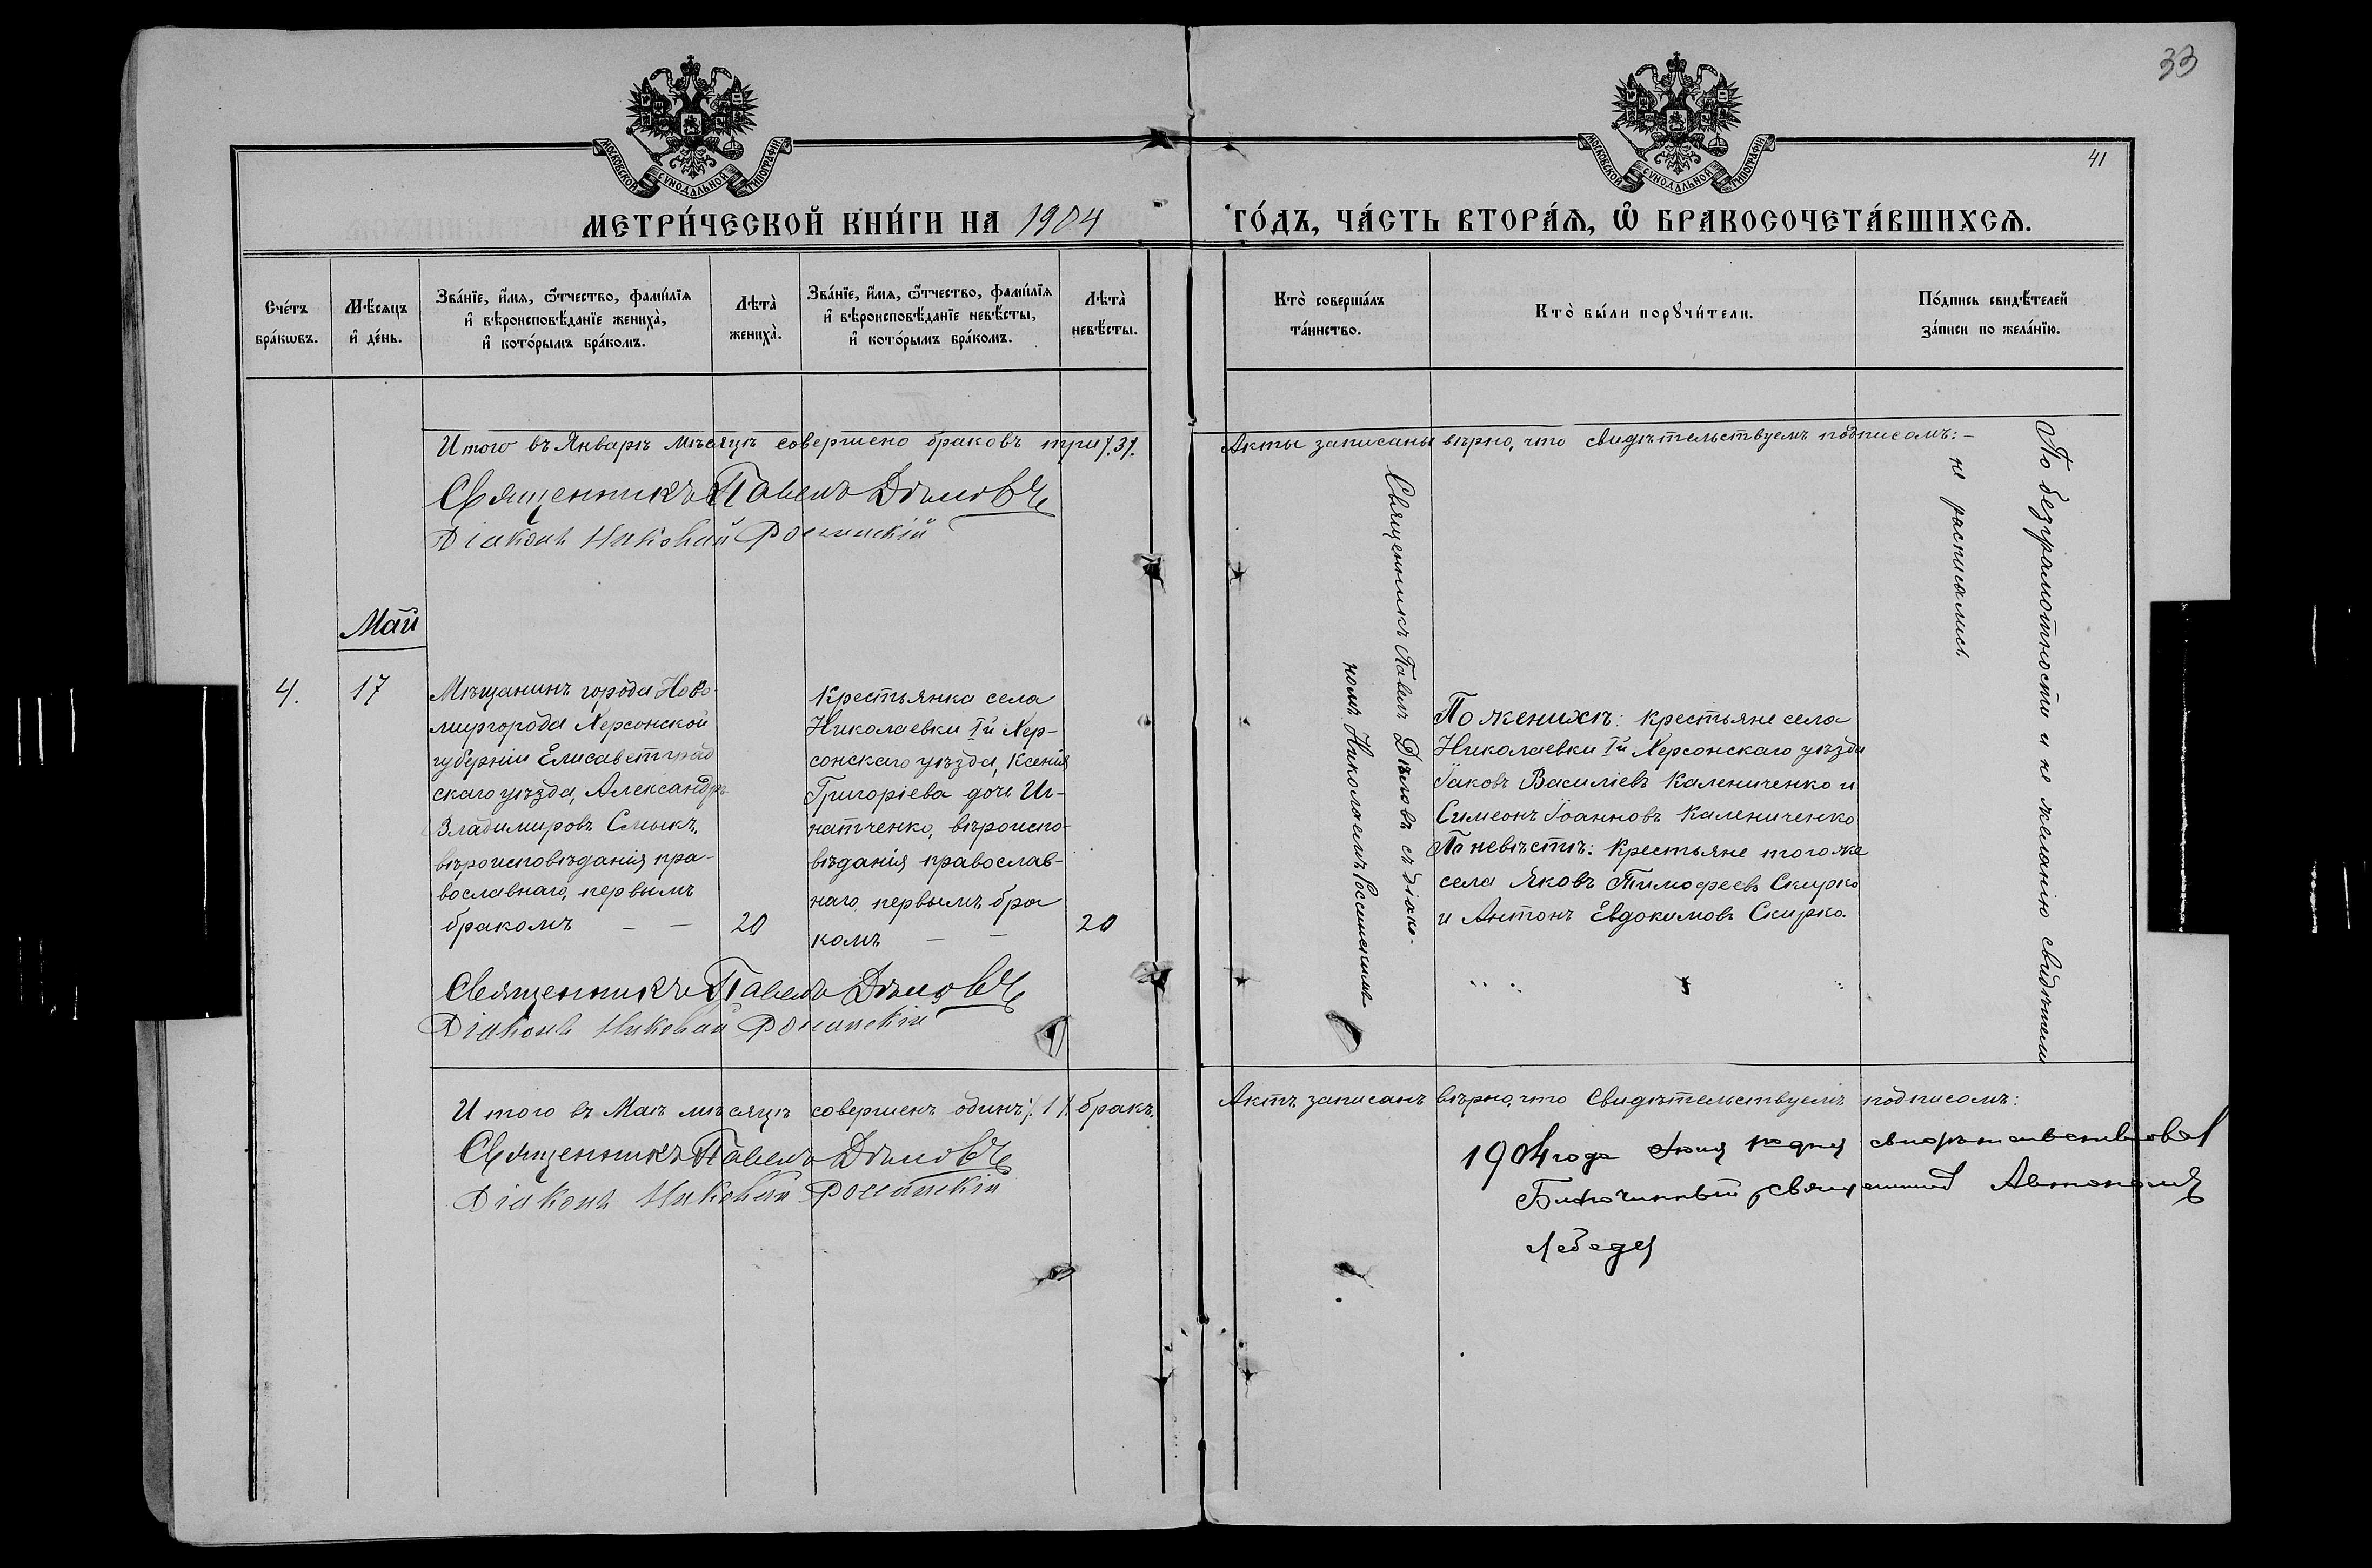 33
41
МОСКОВСКОЙ СѴНОДАЛЬНОЙ ТИПОГРАФІИ
МОСКОВСКОЙ СѴНОДАЛЬНОЙ ТИПОГРАФІИ
МЕТРИ́ЧЕСКОЙ КНИ́ГИ НА 1904
ГО́ДЪ, ЧА́СТЬ ВТОРА́Ѧ, Ѿ БРАКОСОЧЕТА́ВШИХСѦ.
Сче́тъ
бра́кѡвъ.
Мѣ́сяцъ
и҆ де́нь.
Зва́нїе, и҆́мя, ѻ҆́тчество, фами́лїя
и҆ вѣроисповѣ́данїе жениха̀,
и҆ кото́рымъ бра́комъ.
Лѣта̀
жениха̀.
Зва́нїе, и҆́мя, ѻ҆́тчество, фами́лїя
и҆ вѣроисповѣ́данїе невѣ́сты,
и҆ кото́рымъ бра́комъ.
Лѣта̀
невѣ́сты.
Кто̀ соверша́лъ
та́инство.
Кто̀ бы́ли порꙋчи́тели.
По́дпись свидѣ́телей
за́писи по жела́нїю.
Итого въ Январѣ мѣсяцѣ совершено браковъ три /.3/.
Священникъ Павелъ Дѣловъ
Діаконъ Николай Россинскій
Акты записаны вѣрно, что свидѣтельствуемъ подписомъ: –
Май
4.
17
Мѣщанинъ города Ново-
миргорода Херсонской
губерніи Елисаветград
скаго уѣзда, Александръ
Владимировъ Смыкъ,
вѣроисповѣданія пра-
вославнаго, первымъ
бракомъ – –
20
Крестьянка села
Николаевки Iй Хер-
сонскаго уѣзда, Ксенія
Григоріева дочь Иг-
натченко, вѣроиспо-
вѣданія православ-
наго, первымъ бра
комъ – –
20
Священникъ Павелъ Дѣловъ съ діако-
номъ Николаемъ Россинскимъ
По женихѣ: крестьяне села
Николаевки Iй Херсонскаго уѣзда
Іаковъ Василіевъ Калениченко и
Симеонъ Іоанновъ Калениченко
По невѣстѣ: Крестьяне того же
села Яковъ Тимофеевъ Скирко
и Антонъ Евдокимовъ Скирко.
По безграмотности и не желанію свидѣтели
не расписались.
Священникъ Павелъ Дѣловъ
Діаконъ Николай Россинскій
Итого въ Маѣ мѣсяцѣ совершенъ одинъ /.1/. бракъ.
Священникъ Павелъ Дѣловъ
Діаконъ Николай Россинскій
Актъ записанъ вѣрно, что свидѣтельствуемъ подписомъ:
1904 года дня
Благочинный Священникъ
Лебедев